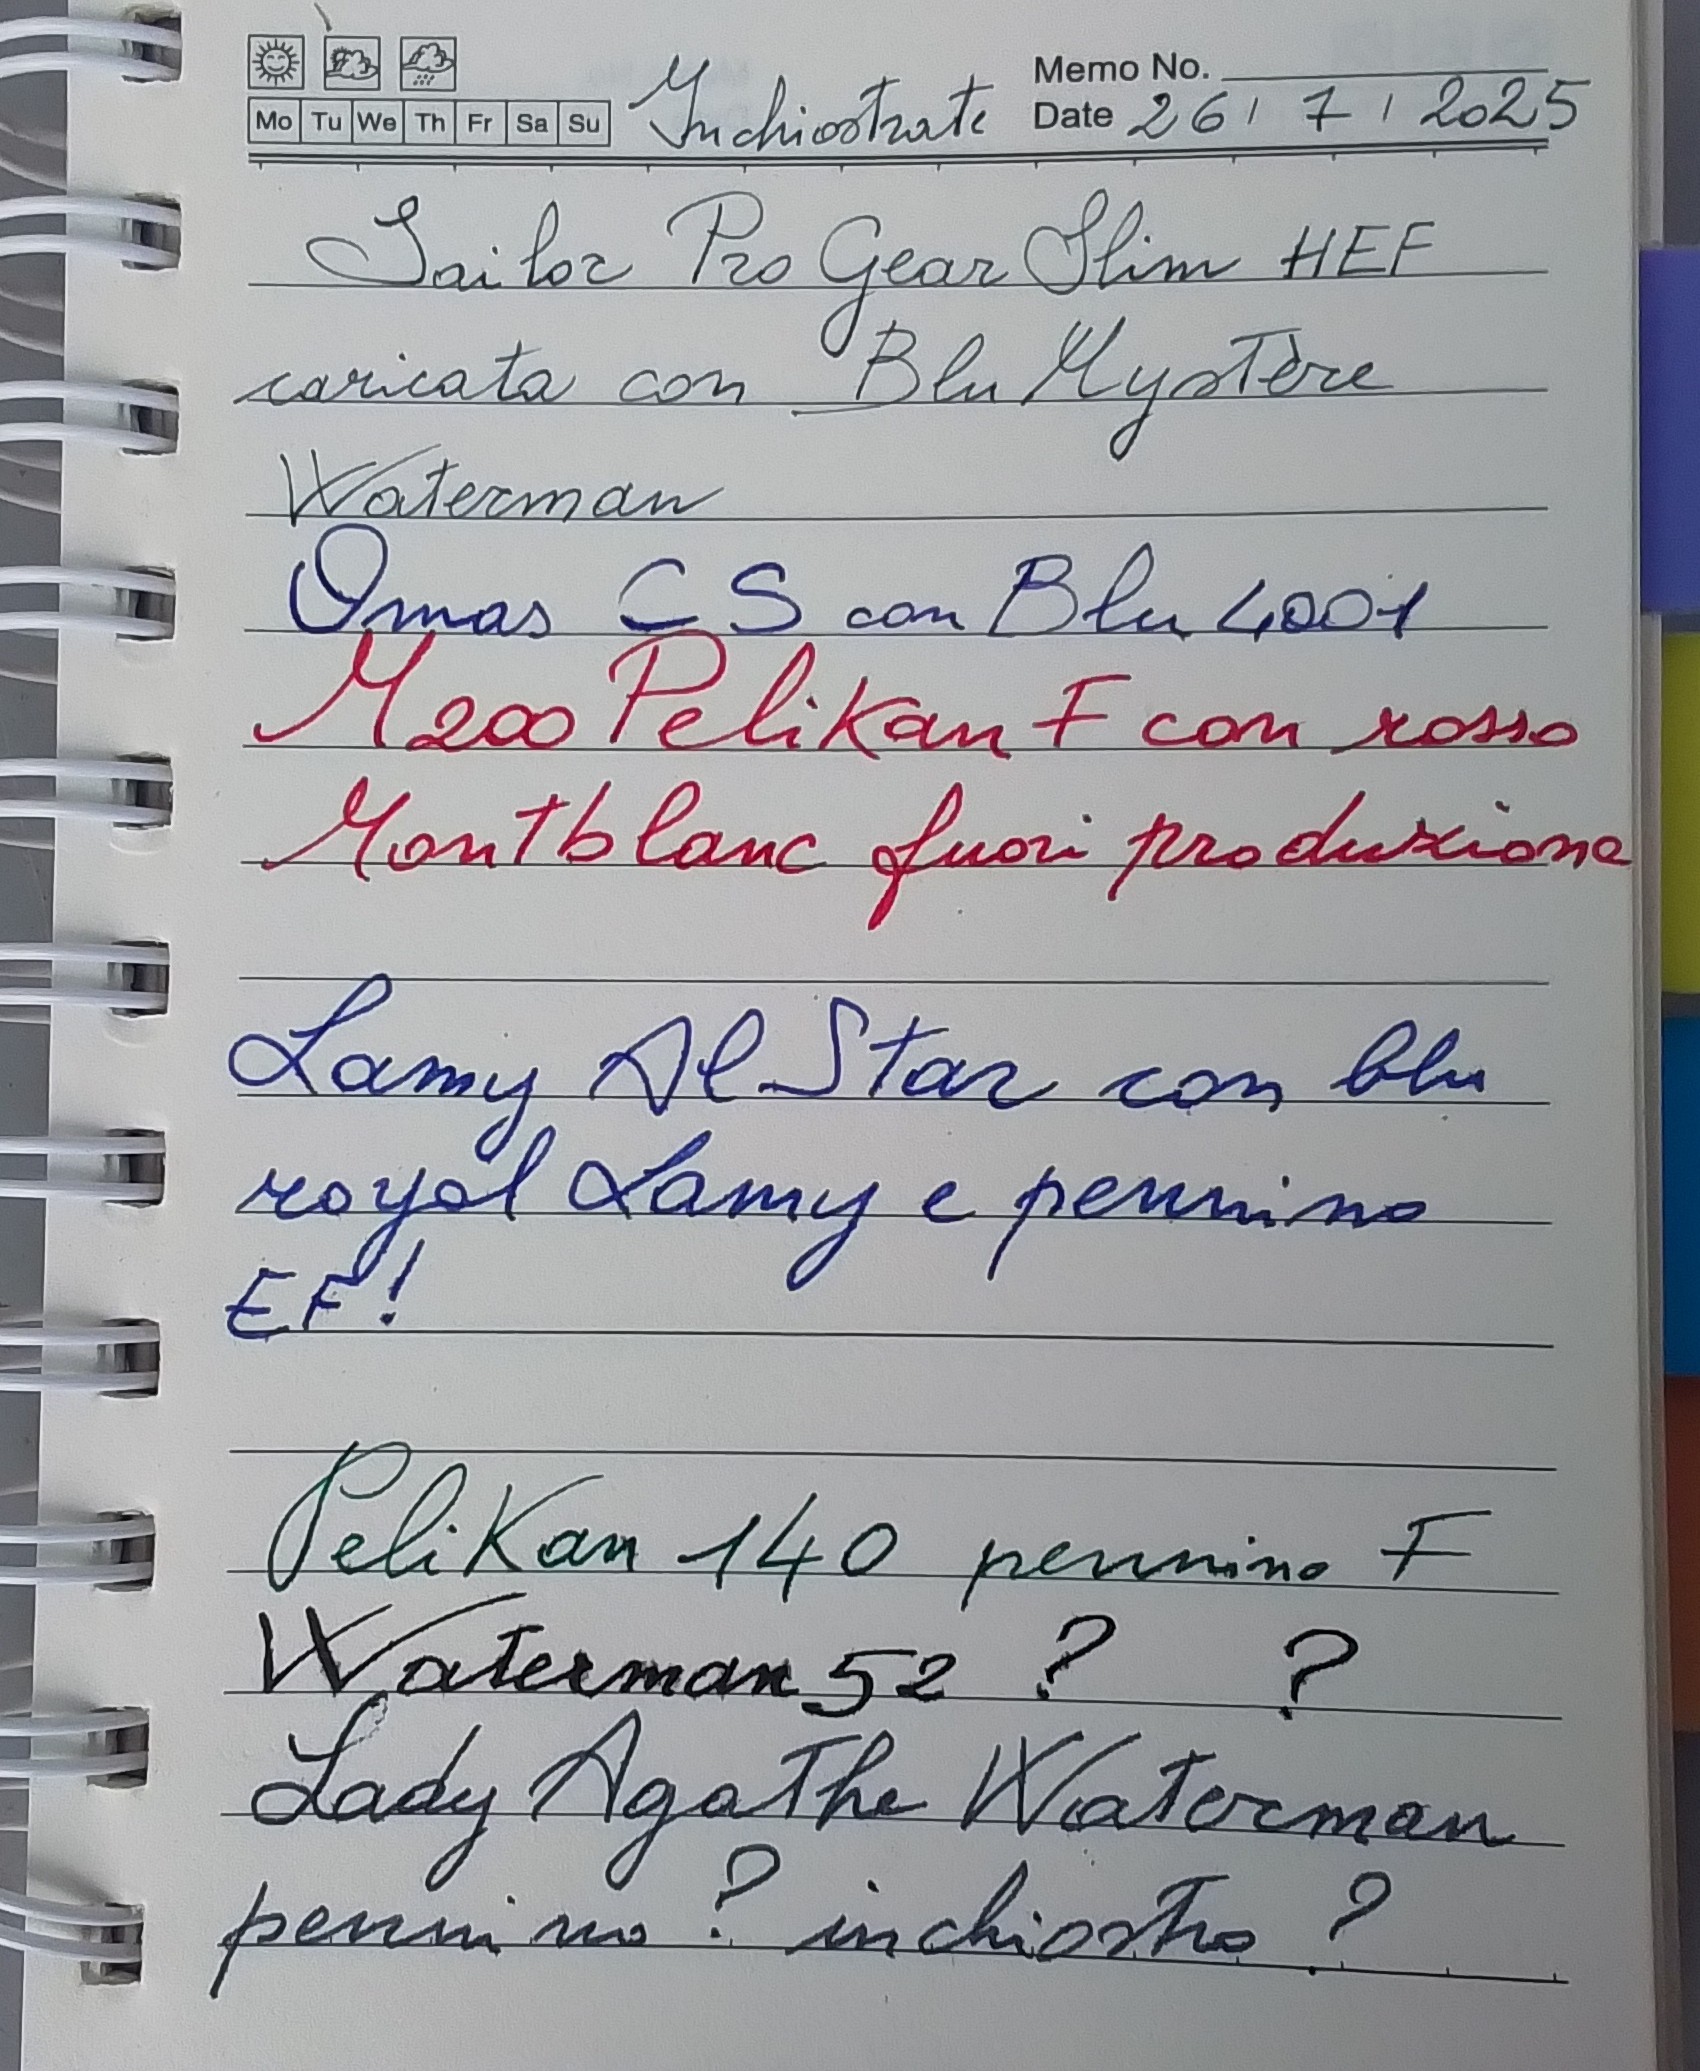 Memo No.
Mo Tu We Th Fr Sa Su Inchiostrate Date 26/7/2025
Sailor Pro Gear Slim HEF
caricata con Blu Mystère
Waterman
Omas CS con Blu 4001
M200 Pelikan F con rosso
Montblanc fuori produzione
Lamy Al Star con blu
royal Lamy e pennino
EF!
Pelikan 140 pennino F
Waterman 52 ? ?
Lady Agathe Waterman
pennino ? inchiostro ?